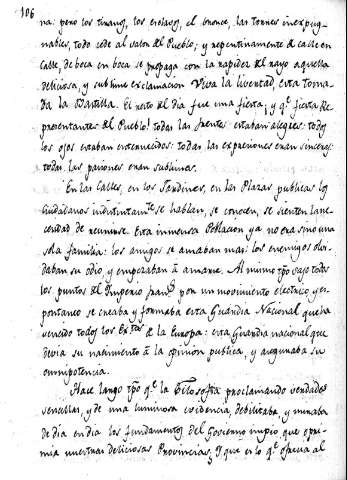 106
na: pero los tiranos, los esclavos, el bronce, las torres inexpug-
nables, todo cede al valor del Pueblo; y repentinamente de calle en
calle, de boca en boca se propaga con la rapidez del rayo aquella
deliciosa, y sublime exclamacion Viva la libertad, esta toma-
da la Bastilla. El resto del dia fue una fiesta; y q.e fiesta Re-
presentantes del Pueblo! todas las frentes estaban alegres: todos
los ojos estaban enternecidos: todas las expresiones eran sinceras:
todas las pasiones eran sublimes.
En las Calles, en los Jardines, en las Plazas publicas los
Ciudadanos indistintam.te se hablan, se conocen, se sienten la ne-
cesidad de reunirse. Esta inmensa Poblacion ya no era sino una
sola familia: los amigos se amaban mas los enemigos olvi-
daban su odio y empezaban à amarse. Al mismo tpō bajo todos
los puntos del Imperio fran.s por un movimiento electrico y es-
pontaneo se creaba y formaba esta Guardia Nacional que ha
vencido todos los Ex.tos de la Europa: esta Guardia nacional que
devia su nacimiento à la opinion publica, y aseguraba su
omnipotencia.
Hace largo tpō q.e la Filosofia proclamando verdades
sencillas, y de una luminosa evidencia debilitaba, y minaba
de dia en dia los fundamentos del Govierno impio que opri-
mia nuestras deliciosas Provincias; Y que es lo q.e ofrecia al